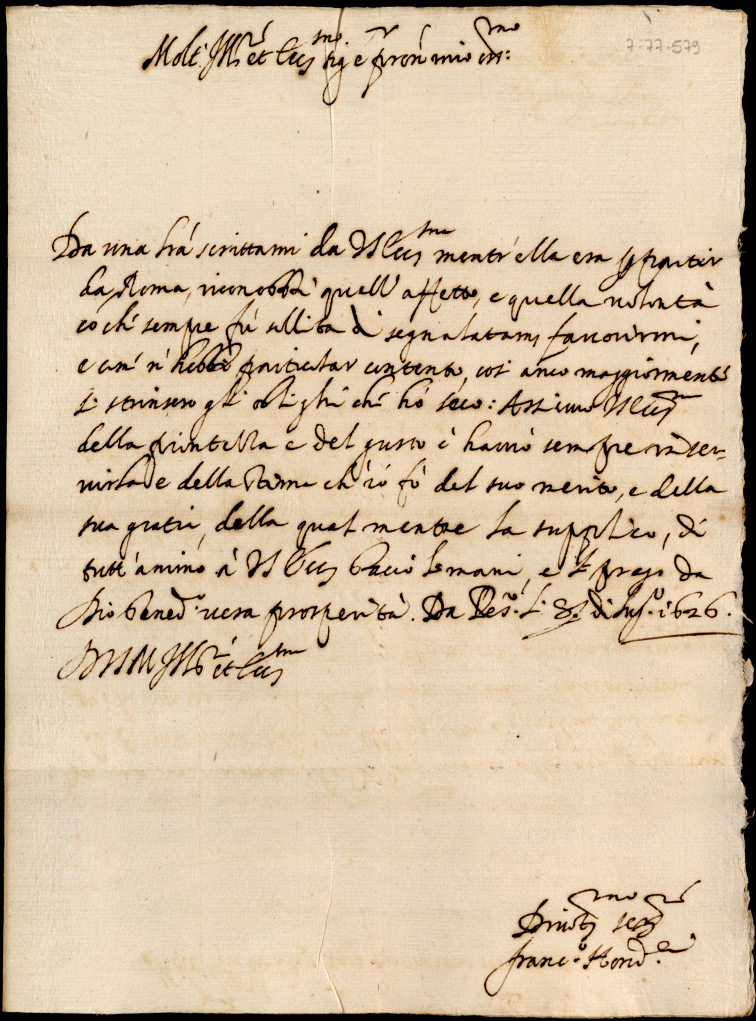 7-77-579
Molt' Ill.re et Ecc.mo Sig.r e pron mio oss.mo
Da una l'rã scrittami da VS Ecc.ma mentr'ella era p partir
da Roma, riconobbi quell'affetto, e quella volontà
cõ ch'è sempre fù sollita di segnalatam. favorirmi,
e com' n'hebbi particolar contento, così anco maggiormente
si strinsero gli oblighi che hò seco: Assicuro VS Ecc.ma
della prontezza e del gusto c'havrò sempre in ser-
virla e della stima ch'io fò del suo merito, e della
sua gratia, della qual mentre la supplico, di
tutt'animo à VS Ecc. bacio le mani, e le prego da
Dio bened.o vera prosperità. Da Pes.o li 8. di lug.o 1626.
DVS M Ill.re et Ecc.ma
Divot.mo ser.re
Franc.o Hond.ei